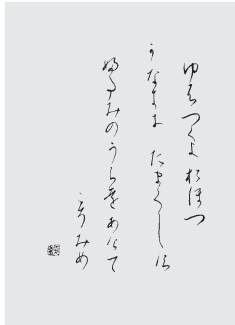 ゆふつくよ おほつ
かなきを たまくし希
婦多みのうらはあけて
こそみめ